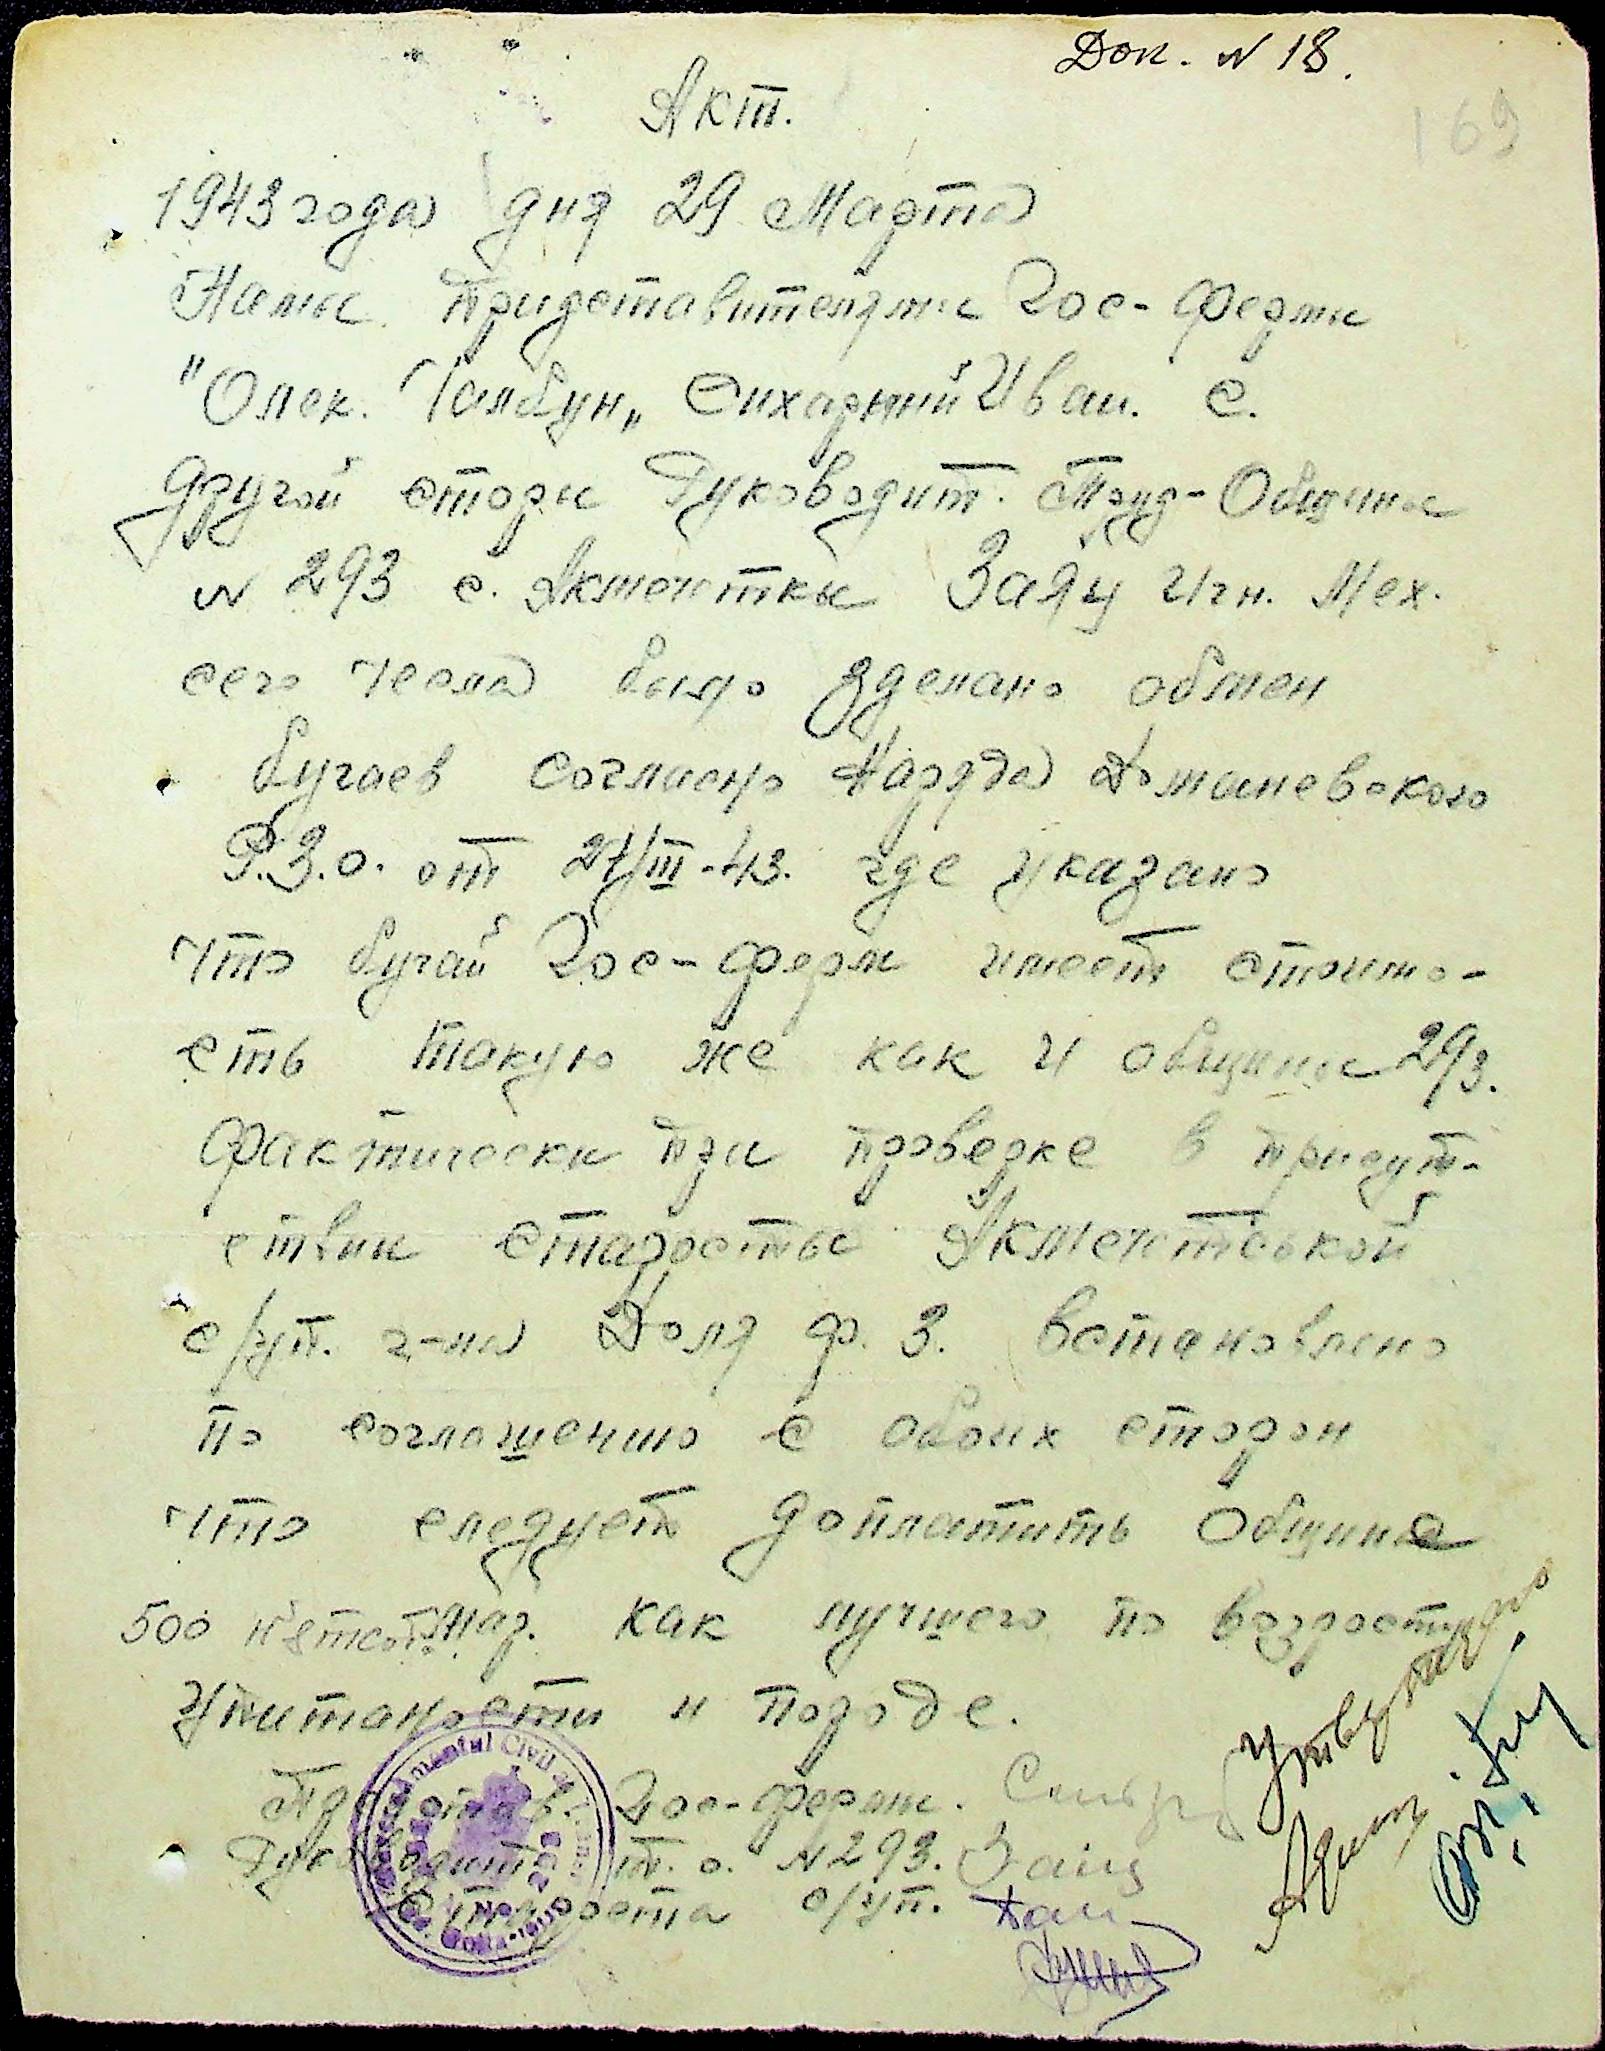 Док. N 18.
169
Акт.
1943 года дня 29 Марта
Нами придставителями Гос-фермы
"Олек. Чамбун„ Сихарний Иван. С.
другой сторы Руководит. Труд-Общины
N 293 с. Акмечткы Заяц Игн. Мех.
сего числа было зделано обмен
бугаев согласно Наряда Доманевского
Р.З.О. от 27/III-43. где указано
что бугай Гос-ферм имеет стоимо-
сть такую же как и общины 293.
Фактически при проверке в присут-
ствии старосты Акмечтської
с/уп. г-на Доля Ф. З. встановлено
по соглашению с обоих сторон
что следует доплатить общине
500 п'ятсот мар. как лучшего по возросту
упитаности и породе.
Придстав. Гос-фермы.
Руководит т. о. N 293. Заиц
Староста с/уп.
Утверждаю